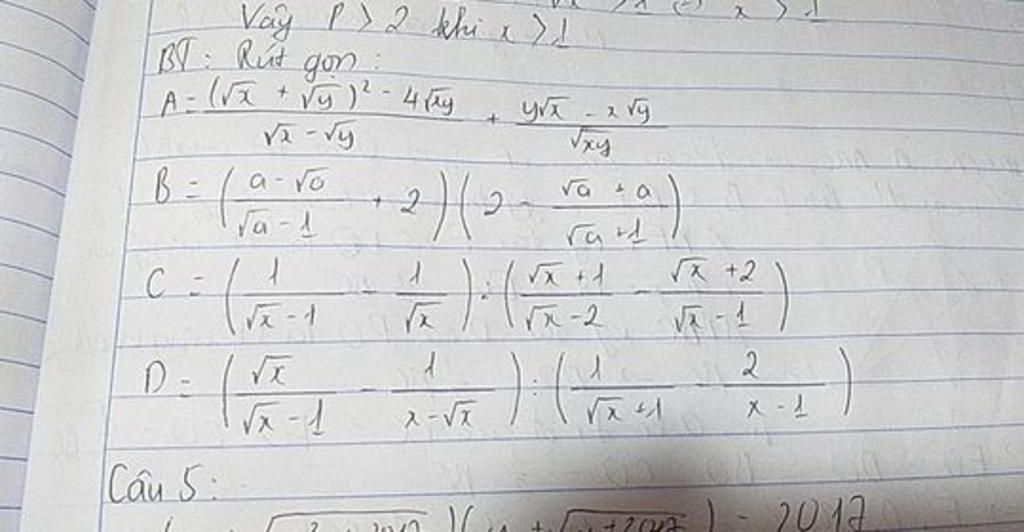 Vậy P > 2 khi x > 1
BT: Rút gọn:
A = ((√x + √y)² - 4√xy)/(√x - √y) + (y√x - x√y)/√xy
B = ((a - √a)/(√a - 1) + 2)(2 - (√a + a)/(√a + 1))
C = (1/(√x - 1) - 1/√x) : ((√x + 1)/(√x - 2) - (√x + 2)/(√x - 1))
D = (√x/(√x - 1) - 1/(x - √x)) : (1/(√x + 1) - 2/(x - 1))
Câu 5:
= 2017